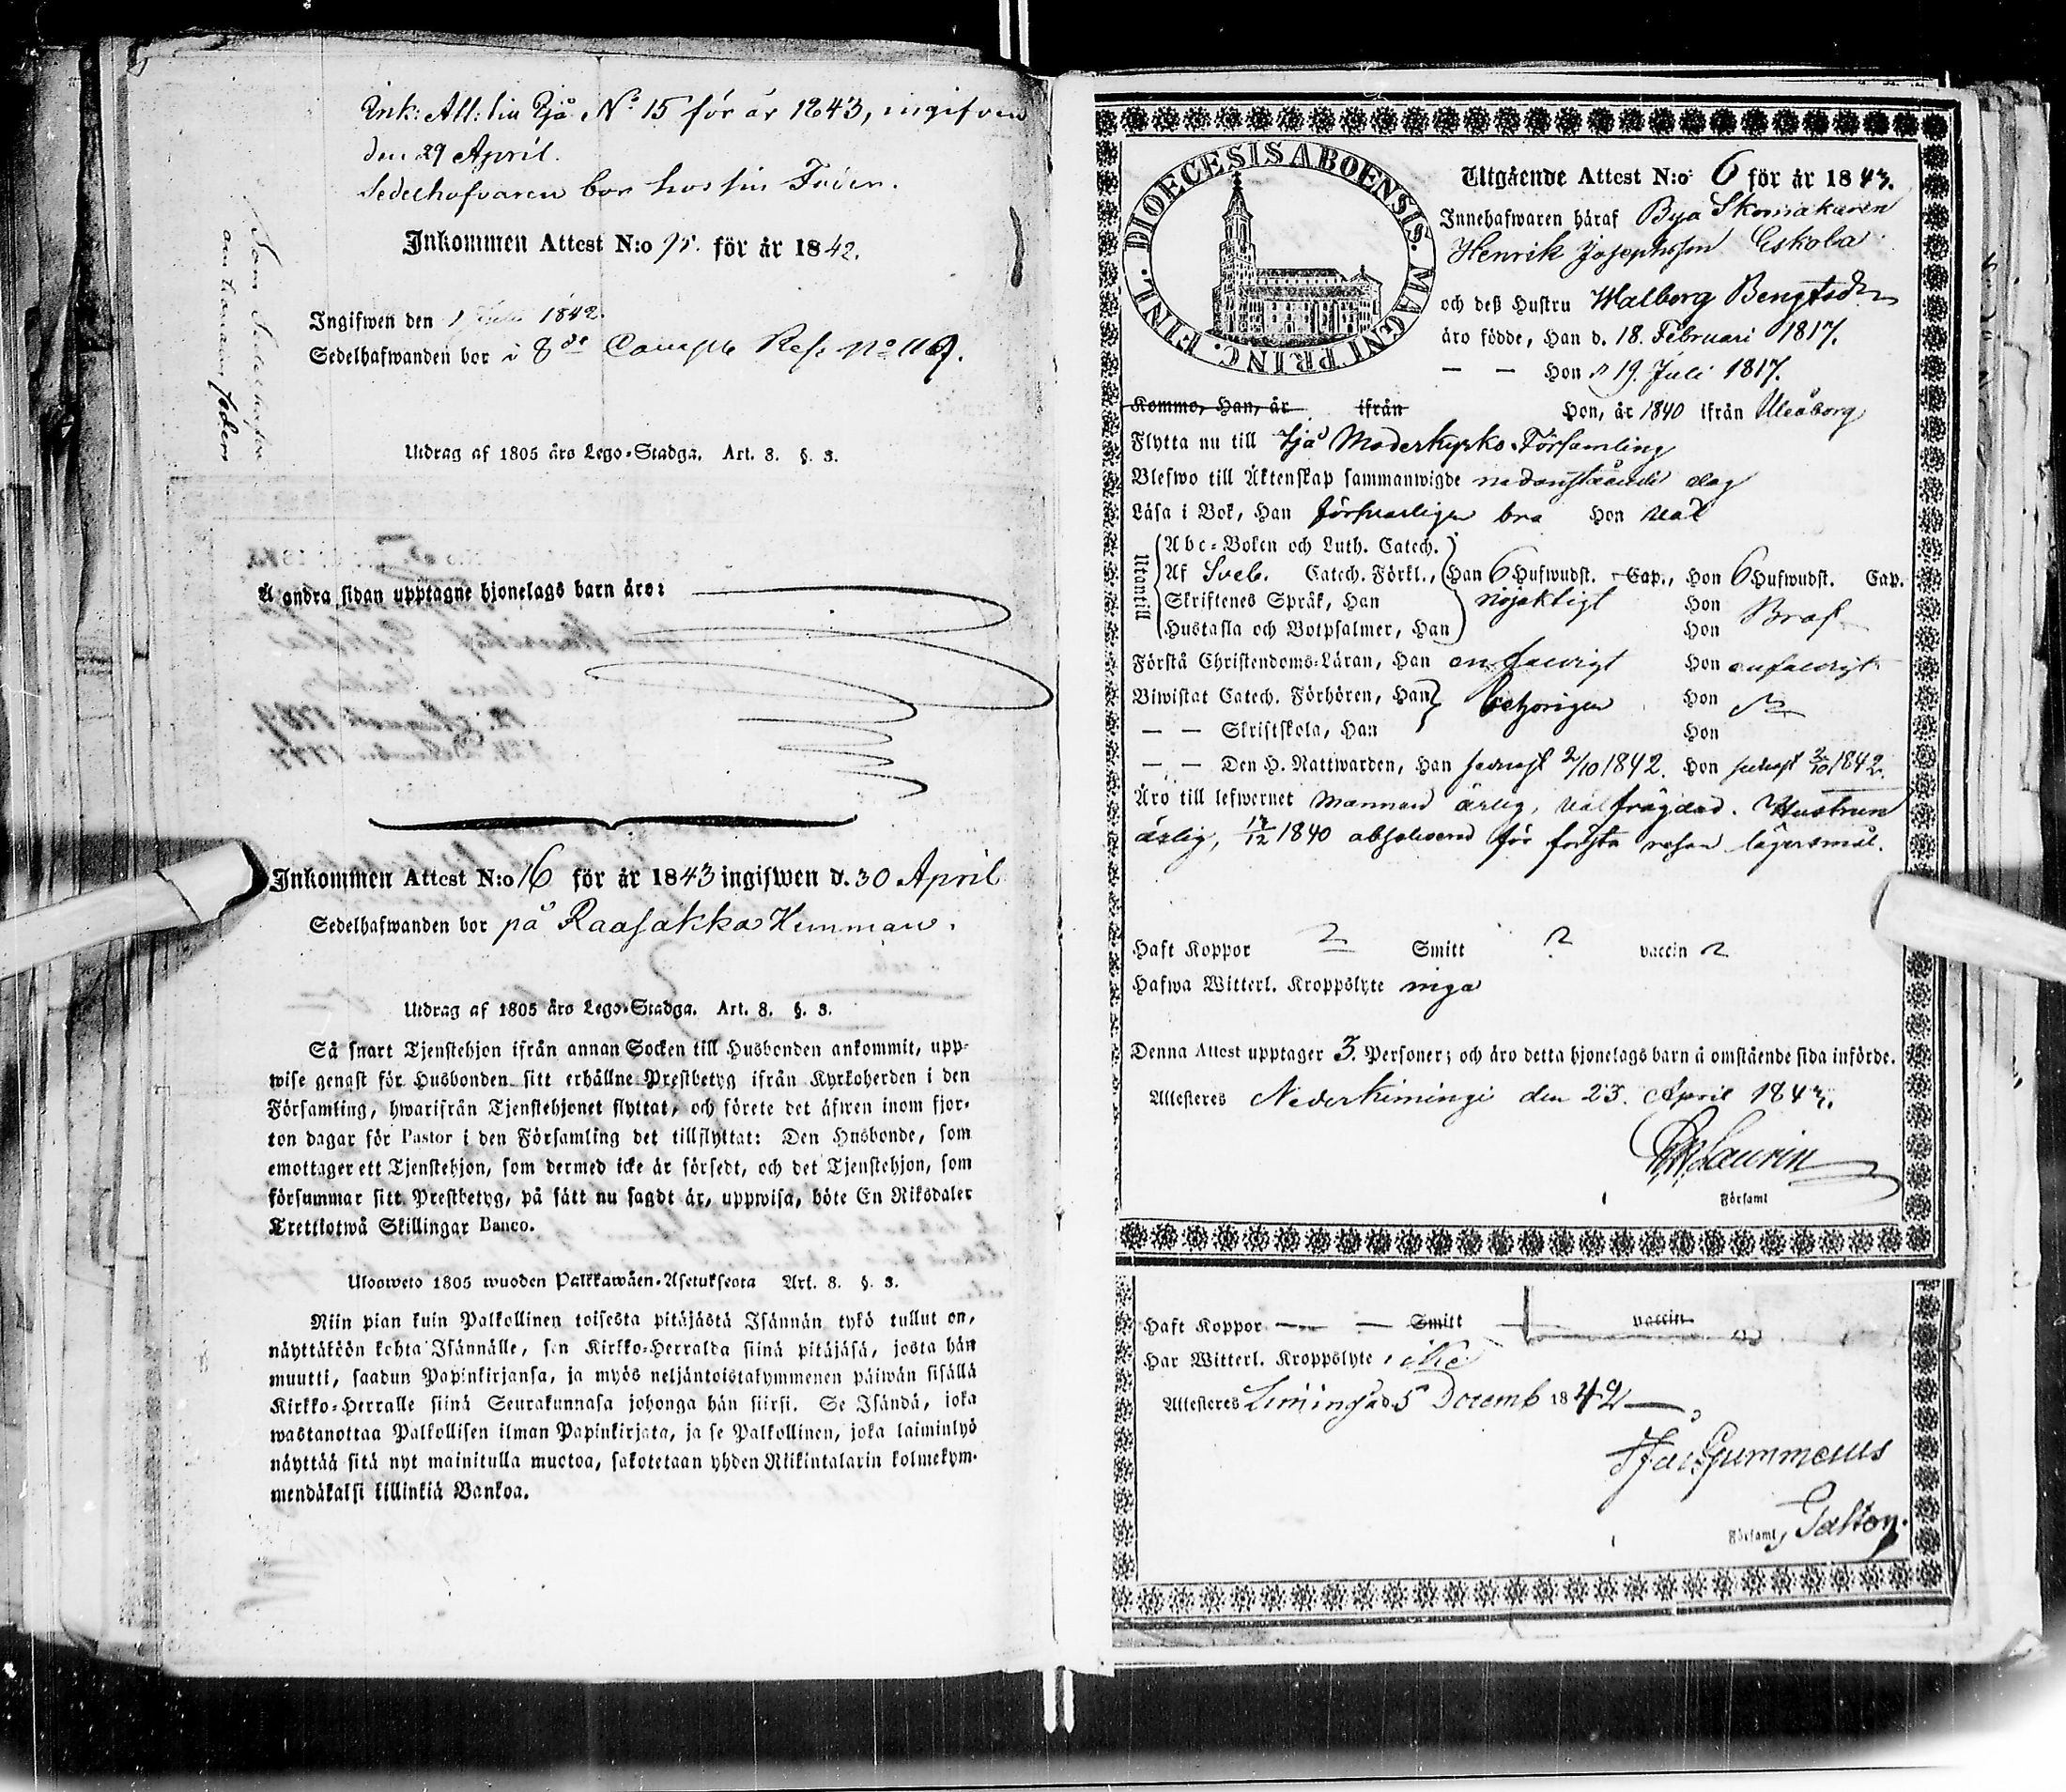 Ink: Att: till Ijå No 15 för år 1843, ingifven
den 29 April.
Sedelhafvaren bor hos sin Fader.
Inkommen Attest N:o 95. för år 1842.
Ingifwen den 1 Juli 1842.
Sedelhafwanden bor i 8de Comp Res. No 119.
Utdrag af 1805 års Lego-Stadga. Art. 8. §. 3.
Å andra sidan upptagne hjonelags barn äro:
Inkommen Attest N:o 16 för år 1843 ingifwen d. 30 April
Sedelhafwanden bor på Raasakka Hemman.
Utdrag af 1805 års Lego-Stadga. Art. 8. §. 3.
Så snart Tjenstehjon ifrån annan Socken till Husbonden ankommit, upp-
wise genast för Husbonden sitt erhållne Prestbetyg ifrån Kyrkoherden i den
Församling, hwarifrån Tjenstehjonet flyttat, och förete det äfwen inom fjor-
ton dagar för Pastor i den Församling det tillflyttat: Den Husbonde, som
emottager ett Tjenstehjon, som dermed icke är försedt, och det Tjenstehjon, som
försummar sitt Prestbetyg, på sätt nu sagdt är, uppwisa, böte En Riksdaler
Trettiotwå Skillingar Banco.
Ulosweto 1805 wuoden Palkkawäen-Asetuksesta Art. 8. §. 3.
Niin pian kuin Palkollinen toisesta pitäjästä Isännän tykö tullut on,
näyttäköön kohta Isännälle, sen Kirkko-Herralda siinä pitäjäsä, josta hän
muutti, saadun Papinkirjansa, ja myös neljäntoistakymmenen päiwän sisällä
Kirkko-Herralle siinä Seurakunnasa johonga hän siirsi. Se Isändä, joka
wastanottaa Palkollisen ilman Papinkirjata, ja se Palkollinen, joka laiminlyö
näyttää sitä nyt mainitulla muotoa, sakotetaan yhden Riikintalarin kolmekym-
mendäkaksi killinkiä Bankoa.
DIOECESIS ABOENSIS. MAGNI PRINC. FINL.
Utgående Attest N:o 6 för år 1843.
Innehafwaren häraf Bya Skomakaren
Henrik Josephsson Eskola
och deß Hustru Walborg Bengtsdr
äro födde, Han d. 18. Februari 1817.
— — Hon d 19. Juli 1817.
Kommo, Han, år ifrån Hon, år 1840 ifrån Uleåborg
Flytta nu till Ijå Moderkyrko Församling
Blefwo till Äktenskap sammanwigde nedanstående dag
Läsa i Bok, Han försvarligen bra Hon väl
Utantill
Abc-Boken och Luth. Catech.
Af Sveb. Catech. Förkl., Han 6 Hufwudst. Cap., Hon 6 Hufwudst. Cap.
Skriftenes Språk, Han nöjaktigt Hon Braf
Hustafla och Botpsalmer, Han Hon
Förstå Christendoms-Läran, Han enfaldigt Hon enfaldigt
Biwistat Catech. Förhören, Han behörigen Hon
— — Skriftskola, Han Hon
— — Den H. Nattwarden, Han senast 2/10 1842. Hon senast 2/10 1842.
Äro till lefwernet Mannen ärlig, väl frägdad. Hustrun
ärlig, 17/12 1840 absolverad för första resan lägersmål.
Haft Koppor ? Smitt ? vaccin
Hafwa Witterl. Kroppslyte inga
Denna Attest upptager 3. Personer; och äro detta hjonelags barn å omstående sida införde.
Attesteres Nederkimingi den 23. April 1843.
Laurin
Församl
Haft Koppor — — Smitt vaccin
Har Witterl. Kroppslyte, icke
Attesteres Limingo d 5 Decemb 1842
Jac Gummerus
Församl, Pastor.